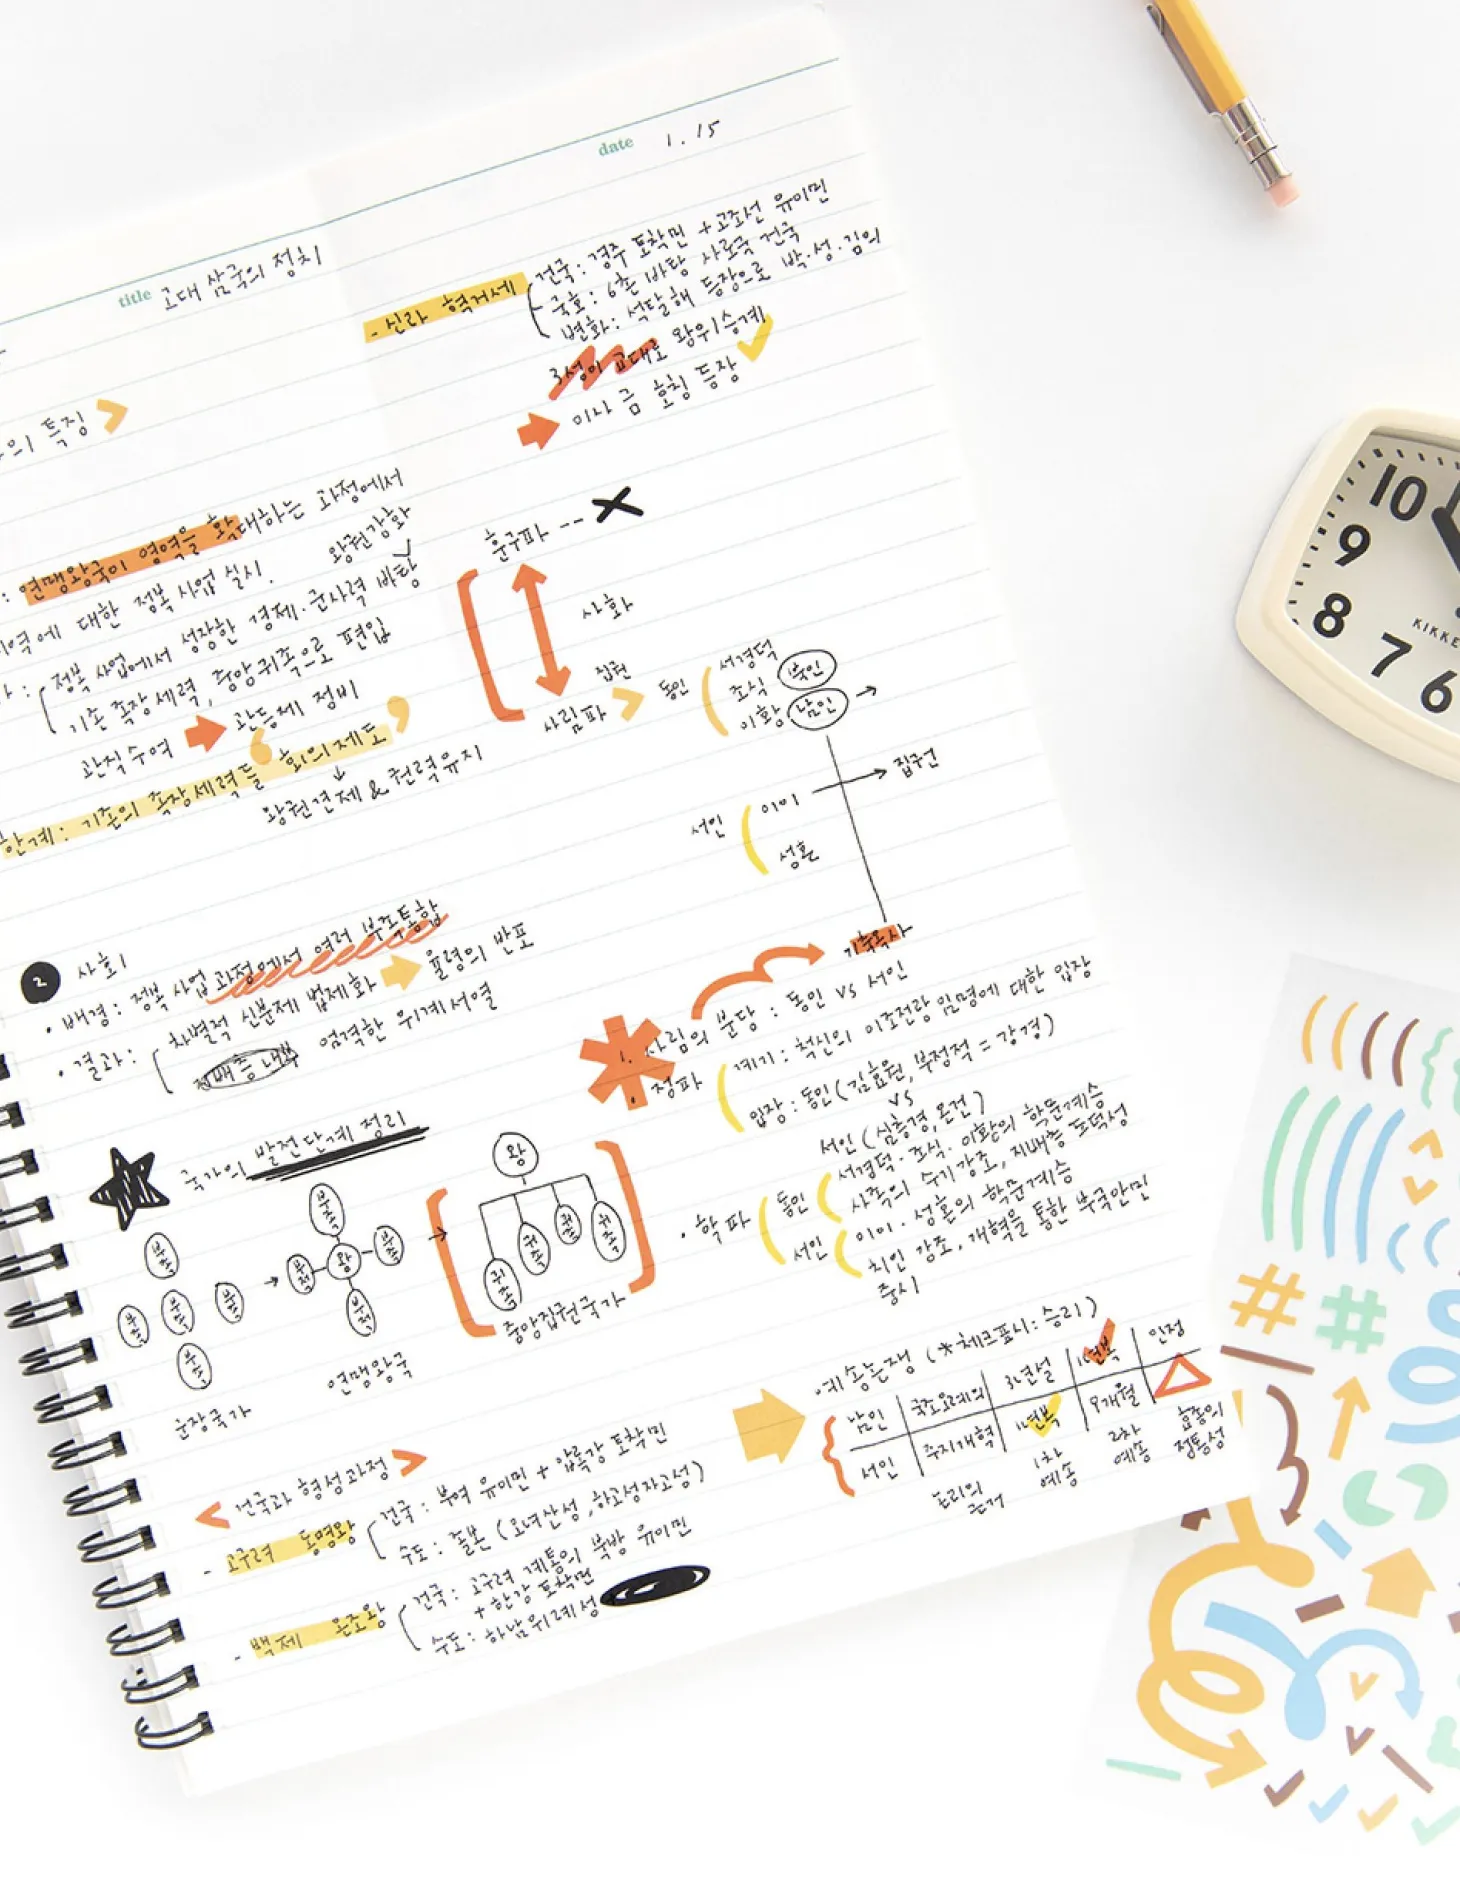 date 1. 15
title 고대 삼국의 정치
의 특징
: 연맹왕국이 영역을 확대하는 과정에서
지역에 대한 정복 사업 실시.
왕권강화
정복 사업에서 성장한 경제·군사력 바탕
기존 족장 세력, 중앙귀족으로 편입
관직수여
관등제 정비
한계: 기존의 족장세력들 회의제도
왕권견제 & 권력유지
2 사회
• 배경: 정복 사업 과정에서 여러 부족통합
• 결과: 차별적 신분제 법제화
율령의 반포
지배층 내부 엄격한 위계서열
국가의 발전단계 정리
부족
부족 부족 부족
부족
군장국가
부족
부족 왕 부족
부족
연맹왕국
왕
귀족 귀족 귀족 귀족
중앙집권국가
건국과 형성과정
- 고구려 동명왕
건국: 부여 유이민 + 압록강 토착민
수도: 졸본 (오녀산성, 하고성자고성)
- 백제 온조왕
건국: 고구려 계통의 북방 유이민
+ 한강 토착민
수도: 하남위례성
- 신라 혁거세
건국: 경주 토착민 + 고조선 유이민
국호: 6촌 바탕 사로국 건국
변화: 석탈해 등장으로 박·성·김의
3성이 교대로 왕위승계
이사금 호칭 등장
훈구파 --
사화
사림파
집권
동인
서경덕
조식 북인
이황 남인
집권
서인
이이
성혼
기축옥사
1. 사림의 분당: 동인 vs 서인
• 정파
계기: 척신의 이조전랑 임명에 대한 입장
입장: 동인 (김효원, 부정적 = 강경)
vs
서인 (심층경, 온건)
• 학파
동인
서경덕·조식·이황의 학문계승
사족의 수기강조, 지배층 도덕성
서인
이이·성혼의 학문계승
치인 강조, 개혁을 통한 부국안민
중시
예송논쟁 (*체크표시: 승리)
남인 국조오례의 3년설 1년복 인정
서인 주자개혁 1년복 9개월
논리의
근거
1차
예송
2차
예송
효종의
정통성
10
9
8
7
6
KIKKE